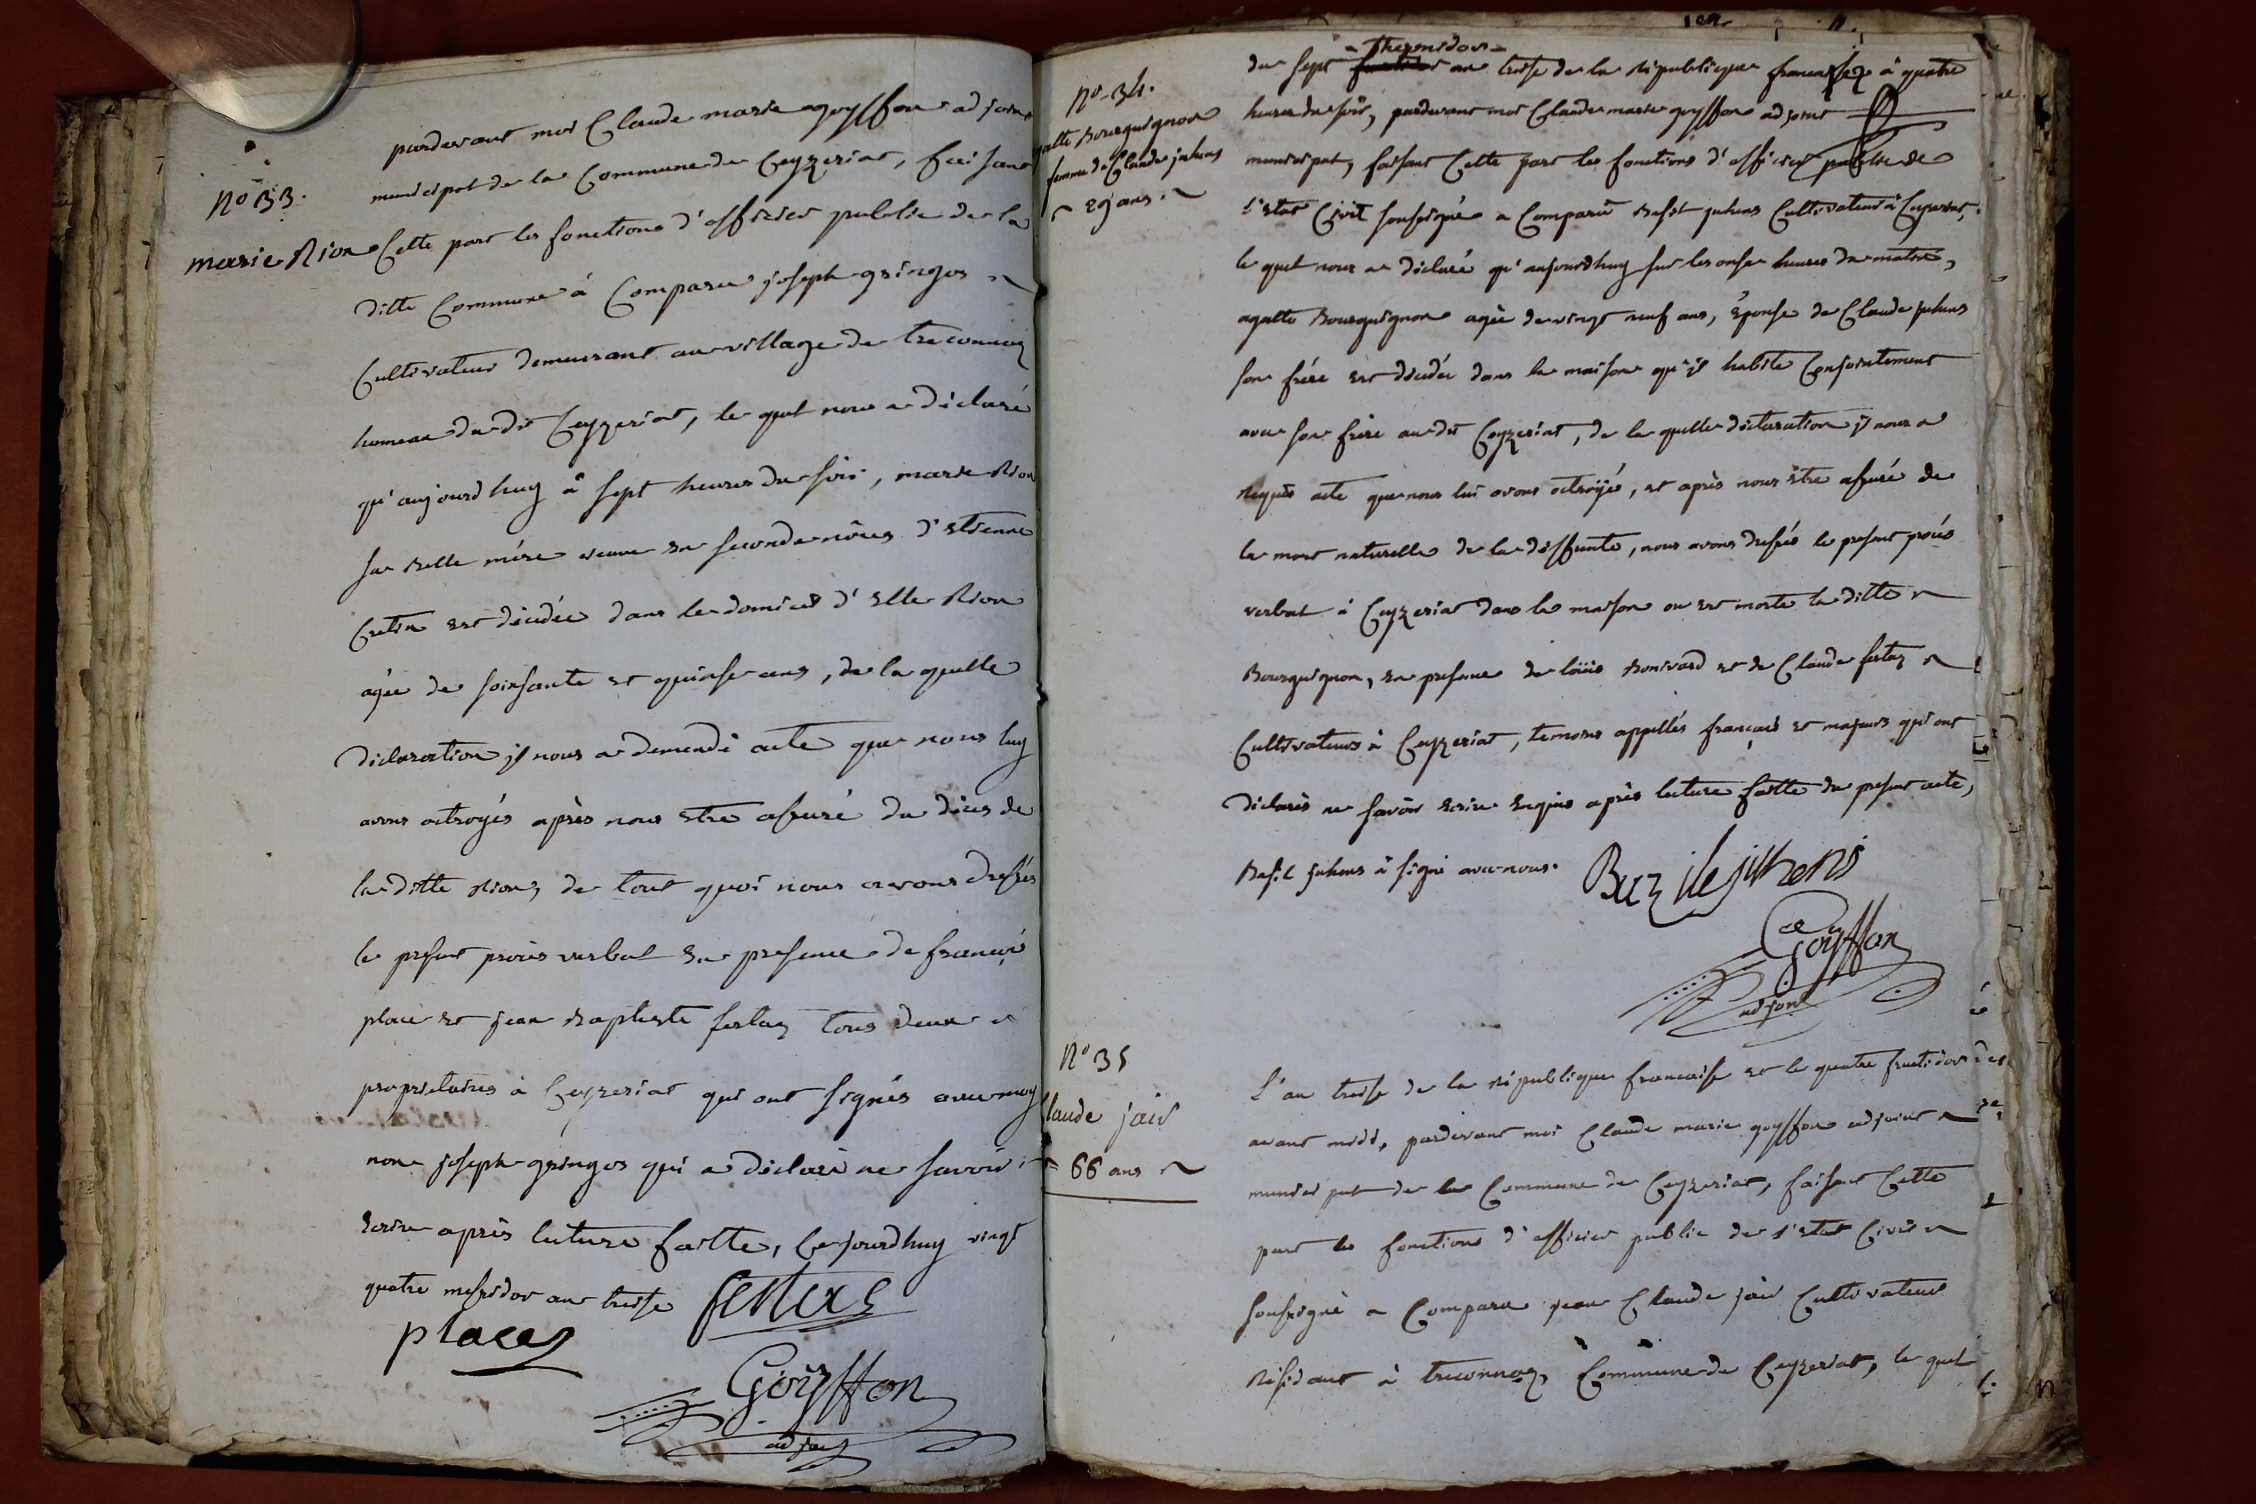 N° 33.
marie Rion
pardevant moi Claude marie goyffon adjoint
municipal de la Commune de Ceyzeriat, faisant
Cette part les fonctions d'officier public de la
ditte Commune à Comparu joseph gringos
Cultivateur demeurant au village de treconnaz
hameau du dit Ceyzeriat, le quel nous a déclaré
qu'aujourdhuy à sept heures du soir, marie Rion
sa belle mére veuve en seconde nôces d'Etienne
Cretin est décédée dans le domicil d'Elle Rion
agée de soixsante et quinse ans, de la quelle
déclaration jl nous a demendé acte que nous luy
avons octroyés après nous etre assuré du décès de
la ditte Rion, de tout quoi nous avons dressés
le present procès verbal en presence de françois
place et jean Baptiste festaz tous deux
proprietaires à Ceyzeriat qui ont signés avec moy
non joseph gringos qui a déclaré ne savoir
Ecrire après lecture faitte, Cejourdhuy vingt
quatre messidor an treise
festaz
place
Goyffon
adjoint
N° 34.
agatte Bourguignon
femme de Claude juhens
29 ans.
du sept thermidor an treise de la République francaise à quatre
heures du soir, pardevant moi Claude marie goyffon adjoint
municipal, faisant Cette part les fonctions d'officier public de
l'etat Civil soussigné a Comparu Basil juhens Cultivateur à Ceyzeriat,
le quel nous a déclaré qu'aujourdhuy sur les onse heures du matin,
agatte Bourguignon agée de vingt neuf ans, Epouse de Claude juhens
son frére est décédée dans la maison qu'jl habite Conjointement
avec son frére au dit Ceyzeriat, de la quelle déclaration jl nous a
Requis acte que nous lui avons octroyé, et après nous être assuré de
la mort naturelle de la deffunte, nous avons dressés le present procés
verbal à Ceyzeriat dans la maison ou est morte la ditte
Bourguignon, en presence de loüis Bonivard et de Claude festaz
Cultivateurs à Ceyzeriat, temoins appellés français et majeurs qui ont
déclarés ne savoir Ecrire Enquis après lecture faitte du present acte,
Basil juhens à signé avec nous.
Bazile juhens
Goyffon
adjoint
N° 35
Claude jaid
66 ans
L'an treise de la République francaise et le quatre fructidor
avant midi, pardevant moi Claude marie goyffon adjoint
municipal de la Commune de Ceyzeriat, faisant Cette
part les fonctions d'officier public de l'etat Civil
soussigné a Comparu jean Claude jaid Cultivateur
Résidant à treconnaz, Commune de Ceyzeriat, le quel